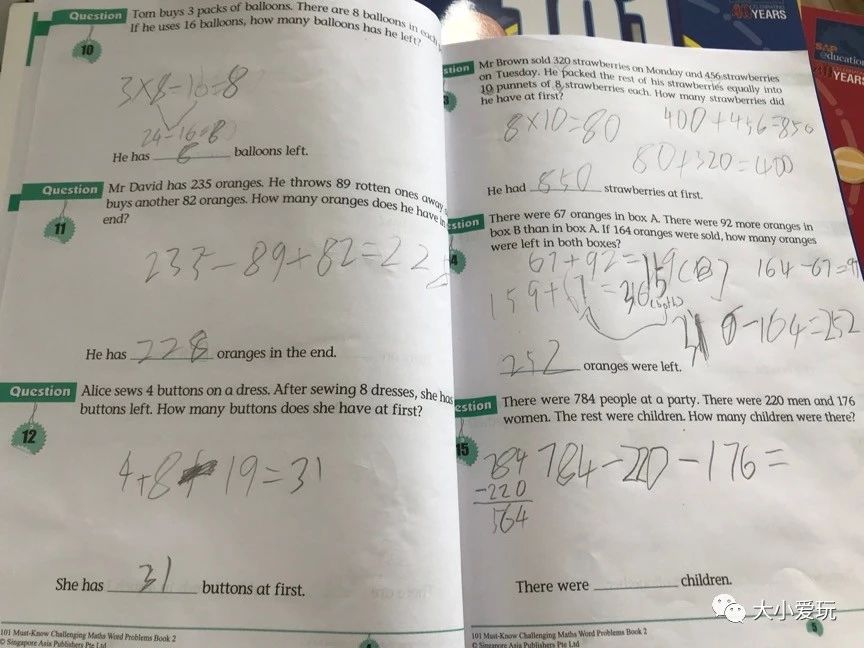 Question 10
Tom buys 3 packs of balloons. There are 8 balloons in each
If he uses 16 balloons, how many balloons has he left?
3×8-16=8
24-16=8
He has 8 balloons left.
Question 11
Mr David has 235 oranges. He throws 89 rotten ones away
buys another 82 oranges. How many oranges does he have in
end?
235-89+82=228
He has 228 oranges in the end.
Question 12
Alice sews 4 buttons on a dress. After sewing 8 dresses, she has
buttons left. How many buttons does she have at first?
4+8+19=31
She has 31 buttons at first.
101 Must-Know Challenging Maths Word Problems Book 2
© Singapore Asia Publishers Pte Ltd
YEARS
SAP
education
YEARS
stion
Mr Brown sold 320 strawberries on Monday and 456 strawberries
on Tuesday. He packed the rest of his strawberries equally into
10 punnets of 8 strawberries each. How many strawberries did
he have at first?
8×10=80
400+456=850
80+320=400
He had 850 strawberries at first.
estion
4
There were 67 oranges in box A. There were 92 more oranges in
box B than in box A. If 164 oranges were sold, how many oranges
were left in both boxes?
67+92=159(B)
164-67=
-164=252
252 oranges were left.
estion
15
There were 784 people at a party. There were 220 men and 176
women. The rest were children. How many children were there?
784-220-176=
784
-220
564
There were ____ children.
101 Must-Know Challenging Maths Word Problems Book 2
© Singapore Asia Publishers Pte Ltd
5
大小爱玩